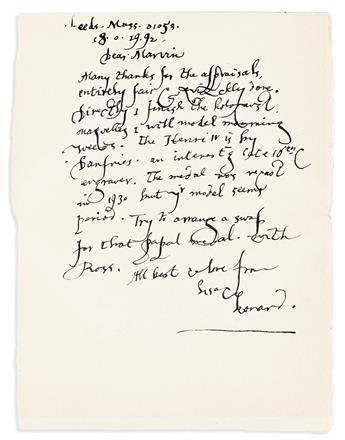 Leeds. Mass. 01053.
18. 0. 19.92.
Dear Marvin
Many thanks for the appraisals,
entirely fair & quickly done.
Directly I finish the holocaust
maquettes I will model mourning
weeds. The Henri IV is by
Danfries. an interest'g late 16th C
engraver. The medal was recast
in 1930 but yr model seems
period. Try to arrange a swap
for that papal medal. with
Ross. All best & love from
Lisa &
Leonard.